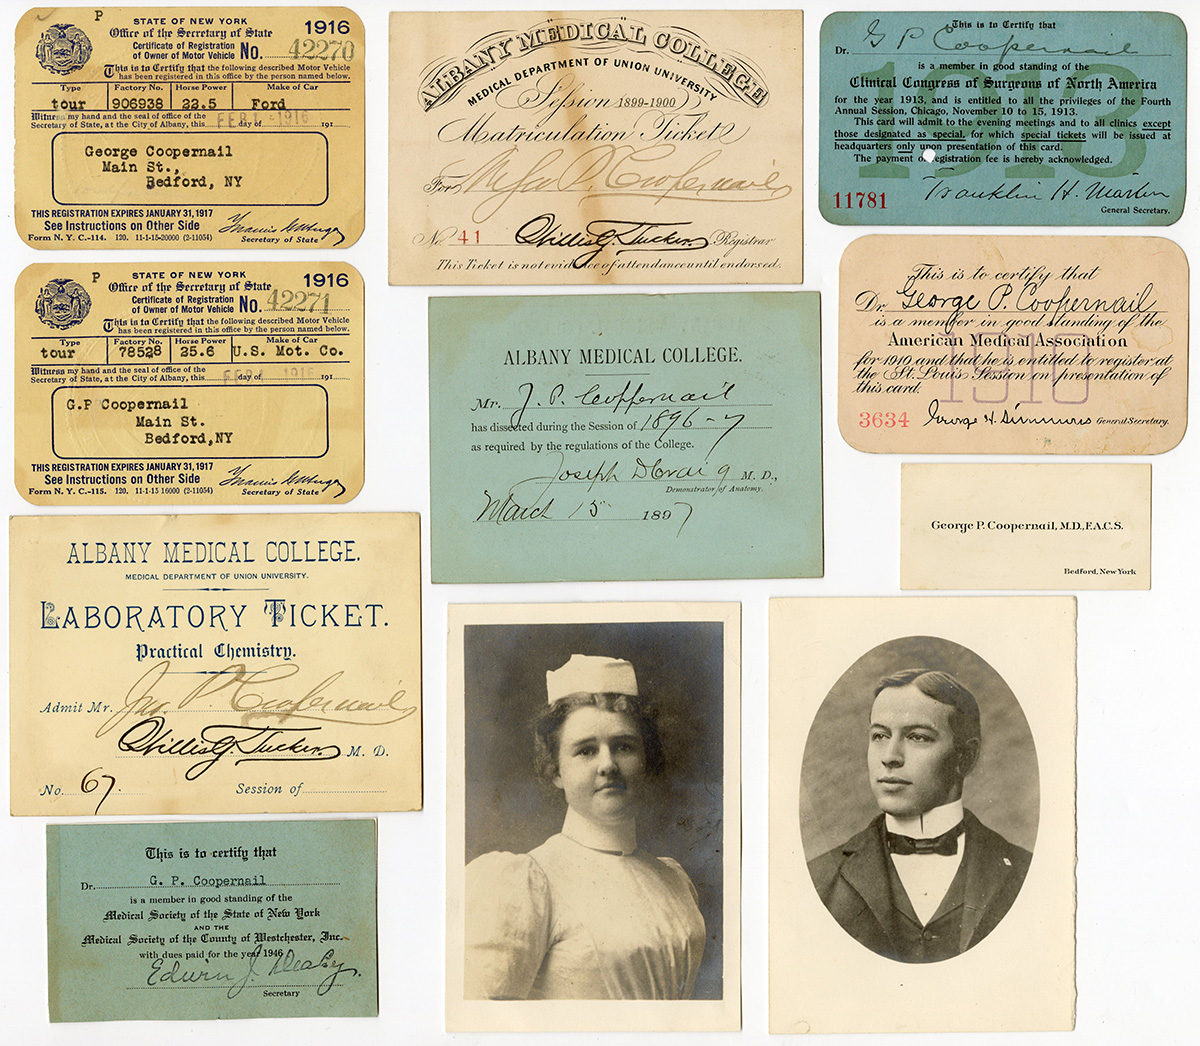 P
STATE OF NEW YORK
1916
Office of the Secretary of State
Certificate of Registration
of Owner of Motor Vehicle
No. 42270
This is to Certify that the following described Motor Vehicle
has been registered in this office by the person named below.
Type Factory No. Horse Power Make of Car
tour 906938 22.5 Ford
Witness my hand and the seal of office of the
Secretary of State, at the City of Albany, this FEB 1 - 1916 day of 191
George Coopernail
Main St.,
Bedford, NY
THIS REGISTRATION EXPIRES JANUARY 31, 1917
See Instructions on Other Side
Form N. Y. C.-114. 120. 11-1-15-20000 (2-11054)
Secretary of State
P
STATE OF NEW YORK
1916
Office of the Secretary of State
Certificate of Registration
of Owner of Motor Vehicle
No. 42271
This is to Certify that the following described Motor Vehicle
has been registered in this office by the person named below.
Type Factory No. Horse Power Make of Car
tour 78528 25.6 U.S. Mot. Co.
Witness my hand and the seal of office of the
Secretary of State, at the City of Albany, this FEB 1 - 1916 day of 191
G.P Coopernail
Main St.
Bedford,NY
THIS REGISTRATION EXPIRES JANUARY 31, 1917
See Instructions on Other Side
Form N. Y. C.-115. 120. 11-1-15 16000 (2-11054)
Secretary of State
ALBANY MEDICAL COLLEGE
MEDICAL DEPARTMENT OF UNION UNIVERSITY
Session 1899-1900
Matriculation Ticket
For Mr Geo P. Coopernail
No. 41 Willis G. Tucker Registrar
This Ticket is not evidence of attendance until endorsed.
This is to Certify that
Dr. G P Coopernail
is a member in good standing of the
Clinical Congress of Surgeons of North America
for the year 1913, and is entitled to all the privileges of the Fourth
Annual Session, Chicago, November 10 to 15, 1913.
This card will admit to the evening meetings and to all clinics except
those designated as special, for which special tickets will be issued at
headquarters only upon presentation of this card.
The payment of registration fee is hereby acknowledged.
1913
11781
Franklin H. Martin
General Secretary.
This is to certify that
Dr. George P. Coopernail
is a member in good standing of the
American Medical Association
for 1910 and that he is entitled to register at
the St. Louis Session on presentation of
this card.
1910
3634 George H. Simmons General Secretary.
ALBANY MEDICAL COLLEGE.
Mr. G. P. Coopernail
has dissected during the Session of 1896-7
as required by the regulations of the College.
Joseph D Craig M. D.,
Demonstrator of Anatomy.
March 15 1897
George P. Coopernail, M.D., F.A.C.S.
Bedford, New York
ALBANY MEDICAL COLLEGE.
MEDICAL DEPARTMENT OF UNION UNIVERSITY.
LABORATORY TICKET.
Practical Chemistry.
Admit Mr. Geo. P. Coopernail
Willis G. Tucker M. D.
No. 67. Session of
This is to certify that
Dr. G. P. Coopernail
is a member in good standing of the
Medical Society of the State of New York
AND THE
Medical Society of the County of Westchester, Inc.
with dues paid for the year 1946
Edwin J.
Secretary